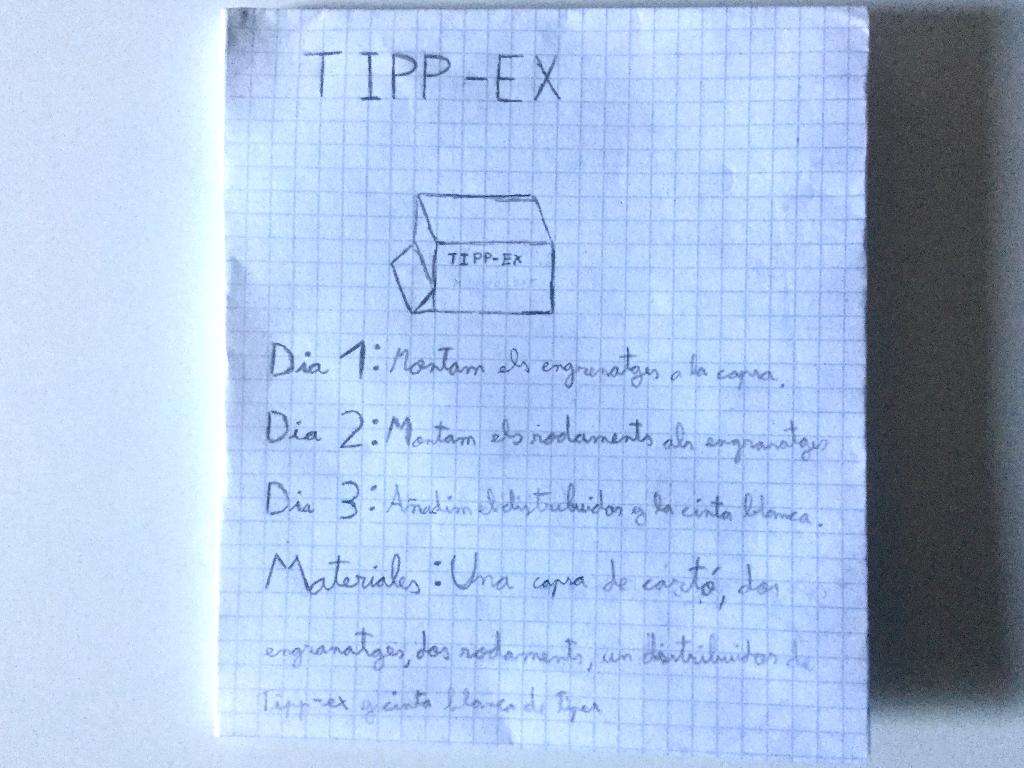 TIPP-EX
TIPP-EX
Dia 1: Montam els engranatges a la capsa.
Dia 2: Montam els rodaments als engranatges
Dia 3: Añadim el distribuidor y la cinta blanca.
Materiales: Una capsa de cartó, dos
engranatges, dos rodaments, un distribuidor de
Tipp-ex y cinta blanca de tipex